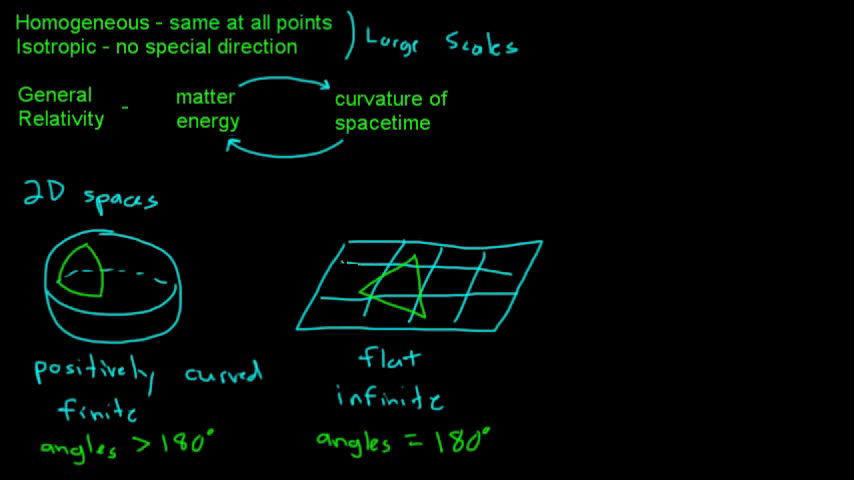 Homogeneous - same at all points
Isotropic - no special direction
) Large Scales
General Relativity - matter energy
curvature of spacetime
2D spaces
positively curved
finite
angles > 180°
flat
infinite
angles = 180°